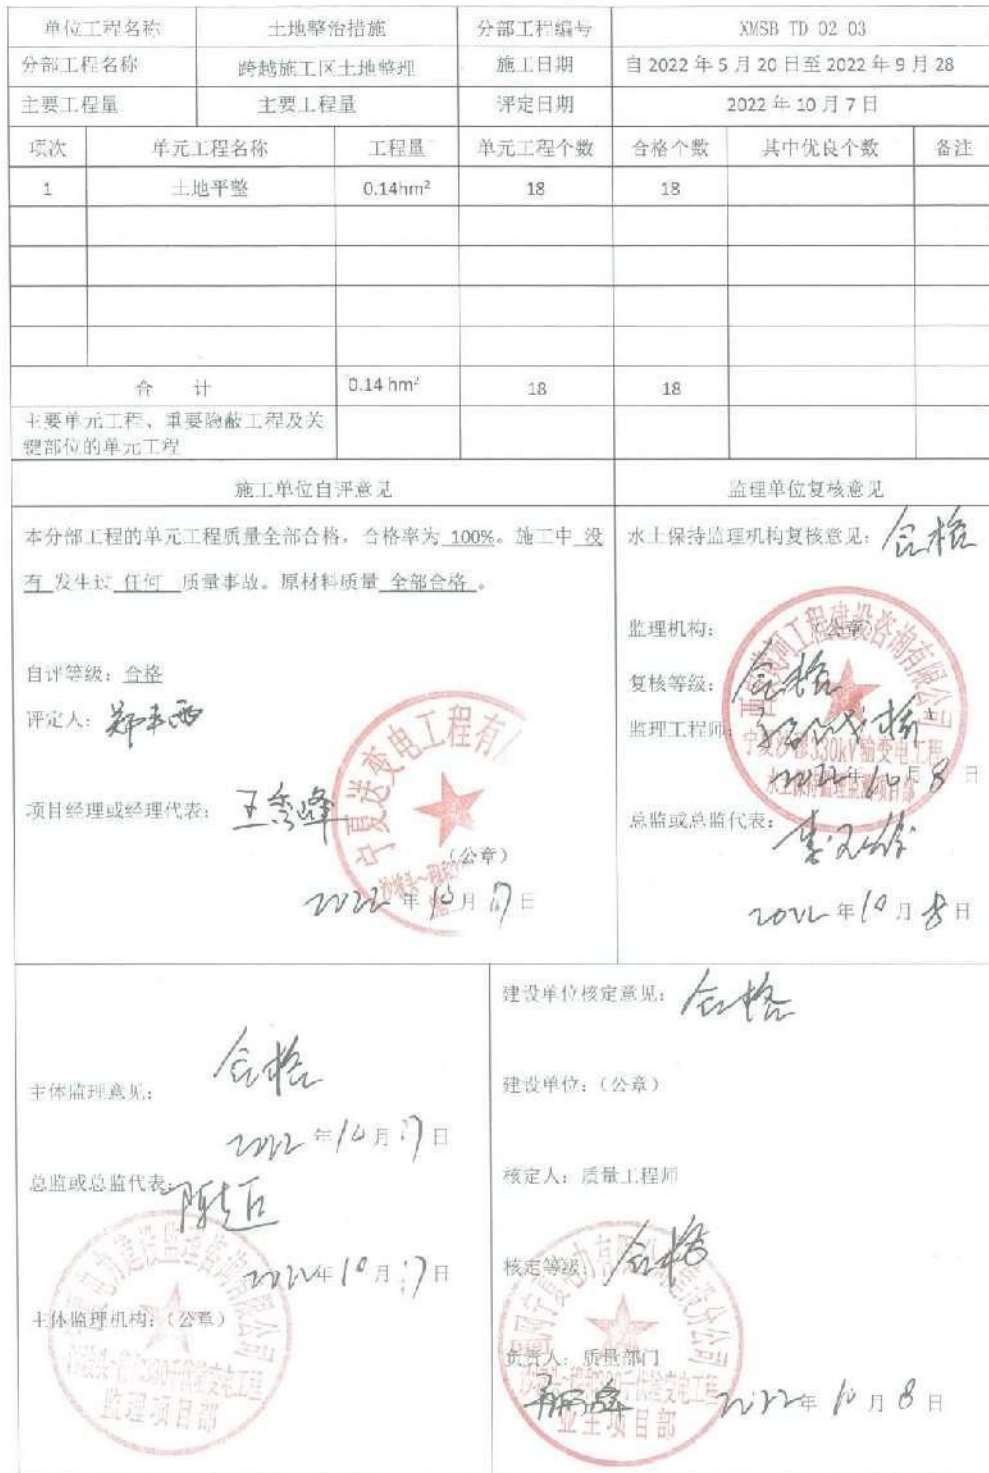 单位工程名称 土地整治措施 分部工程编号 XMSB TD 02 03
分部工程名称 跨越施工区土地整理 施工日期 自 2022 年 5 月 20 日至 2022 年 9 月 28
主要工程量 主要工程量 评定日期 2022 年 10 月 7 日
项次 单元工程名称 工程量 单元工程个数 合格个数 其中优良个数 备注
1 土地平整 0.14hm² 18 18
合 计 0.14 hm² 18 18
主要单元工程、重要隐蔽工程及关
键部位的单元工程
施工单位自评意见
本分部工程的单元工程质量全部合格，合格率为 100%。施工中 没
有 发生过 任何 质量事故。原材料质量 全部合格 。
自评等级：合格
评定人：
项目经理或经理代表：王秀峰
（公章）
2022 年 10 月 7 日
宁夏送变电工程有
监理单位复核意见
水土保持监理机构复核意见：合格
监理机构： （公章）
复核等级：合格
监理工程师
2022 年 10 月 8 日
总监或总监代表：
2022 年 10 月 8 日
工程建设咨询有限公司
330kV输变电工程
水土保持监理
主体监理意见：合格
2022 年 10 月 7 日
总监或总监代表：
2022 年 10 月 7 日
主体监理机构：（公章）
电力建设监理咨询有限公司
330千伏输变电工程
监理项目部
建设单位核定意见：合格
建设单位：（公章）
核定人：质量工程师
核定等级：合格
负责人：质量部门
2022 年 10 月 8 日
业主项目部